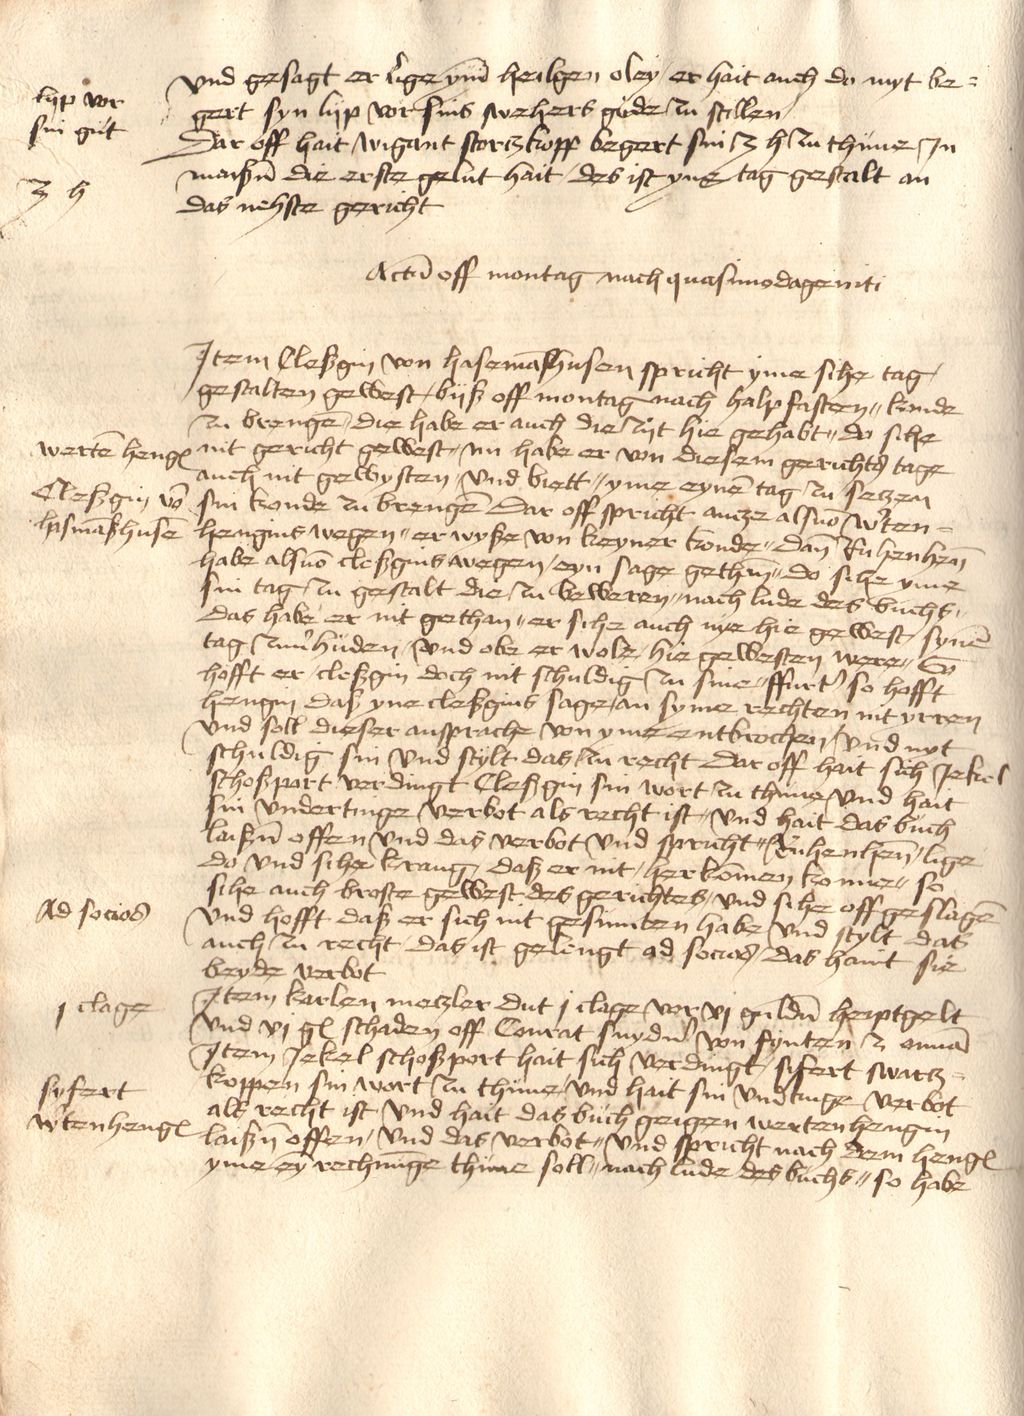 und gesagt er lige ym heilgen oley er hait auch do myt be=
lijp vor
gert syn lijp vor sins swehers gude zu stellen
sin gut
Dar off hait Wigant storczkopp begert sin 3 h zu thune In
3 h
maißn die erste gelut hait des ist yme tag gestalt an
das nehste gericht
Actu off montag nach quasimodogeniti
Item Cleßgin von hasemaßhusen spricht yme sihe tag
gestalten gewest biß off montag nach halpfasten konde
zu brengen die habe er auch die zijt hie gehabt do sihe
nit gericht gewest nu habe er von diesem gerichts tage
werten hengl
auch nit gewysten und biett yme eynen tag zu setzen
Cleßgin vo
sin konde zu brengen Dar off spricht ancze also werten=
hengins wegen er wyße von keyner konde dan Ruhenhen
habe also cleßgins wegen eyn sage gethan do sihe yme
sin tag zu gestalt die zu beweren nach lude des buchs
das habe er nit gethan er sihe auch nye hie gewest synen
tag zuverhuden und obe er wole hie gewesten were So
hofft er cleßgin doch nit schuldig zu sine ffurter so hofft
hengin daß yne cleßgins sage an syme rechten nit yrren
und soll dieser ansprache von yme entbrochen und nyt
schuldig sin und stylt das zu recht Dar off hait sich Jekel
schoßport verdingt Cleßgin sin wort zu thune und hait
sin undertinge verbot als recht ist und hait das buch
laißn offen und das verbot und spricht Ruhenhen lige
do und sihe krang daß er nit herkomen konne so
sihe auch broste gewest des gerichtes und sihe off geslagen
Ad socios
und hofft daß er sich nit gesumten habe und stylt das
auch zu recht das ist gelengt ad socios das haint sie
beyde verbot
j clage
Item karlen meczler dut j clage vor vj guldn heiptgelt
und vj gl schaden off Conrat snyder von fynten z omnia
Item Jekel schoßport hait sich verdingt sifert swarcz=
syfert
koppen sin wort zu thune und hait sin undtinge verbot
als recht ist und hait das buch geigen wertenhengin
wtenhengl
laißn offen und das verbot und spricht nach dem hengl
yme ey rechnunge thune soll nach lude des buchs so habe